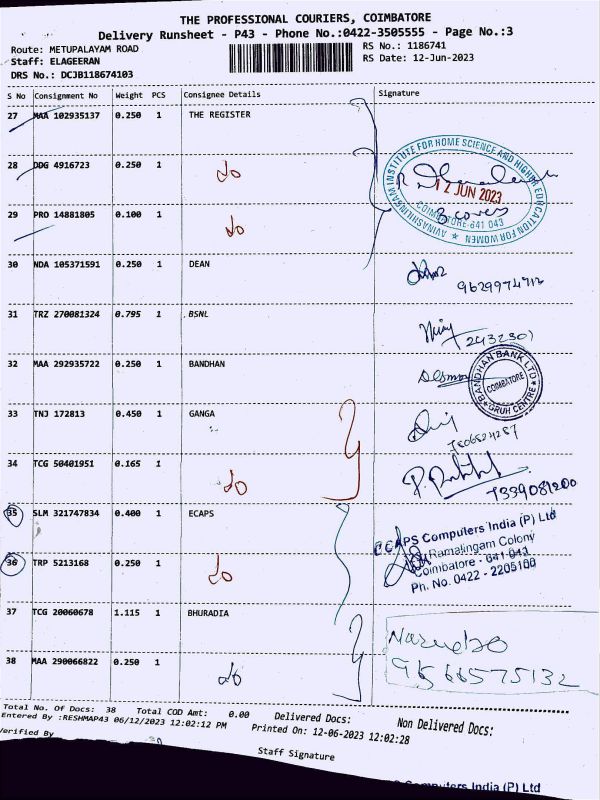 THE PROFESSIONAL COURIERS, COIMBATORE
Delivery Runsheet - P43 - Phone No.:0422-3505555 - Page No.:3
Route: METUPALAYAM ROAD
RS No.: 1186741
Staff: ELAGEERAN
RS Date: 12-Jun-2023
DRS No.: DCJB118674103
S No Consignment No Weight PCS Consignee Details Signature
27 MAA 102935137 0.250 1 THE REGISTER
28 DDG 4916723 0.250 1 do
29 PRO 14881805 0.100 1 do
AVINASHILINGAM INSTITUTE FOR HOME SCIENCE AND HIGHER EDUCATION FOR WOMEN
12 JUN 2023
3 covers
COIMBATORE-641 043
30 NDA 105371591 0.250 1 DEAN
9629974712
31 TRZ 270081324 0.795 1 BSNL
2432301
32 MAA 292935722 0.250 1 BANDHAN
BANDHAN BANK LTD
COIMBATORE
GRUH CENTRE
33 TNJ 172813 0.450 1 GANGA
34 TCG 50401951 0.165 1 do
7339081200
35 SLM 321747834 0.400 1 ECAPS
ECAPS Computers India (P) Ltd
Ramalingam Colony
Coimbatore - 641 043
Ph. No. 0422 - 2205100
36 TRP 5213168 0.250 1 do
37 TCG 20060678 1.115 1 BHURADIA
38 MAA 290066822 0.250 1 do
Total No. Of Docs: 38 Total COD Amt: 0.00 Delivered Docs: Non Delivered Docs:
Entered By :RESHMAP43 06/12/2023 12:02:12 PM Printed On: 12-06-2023 12:02:28
Verified By
Staff Signature
Computers India (P) Ltd